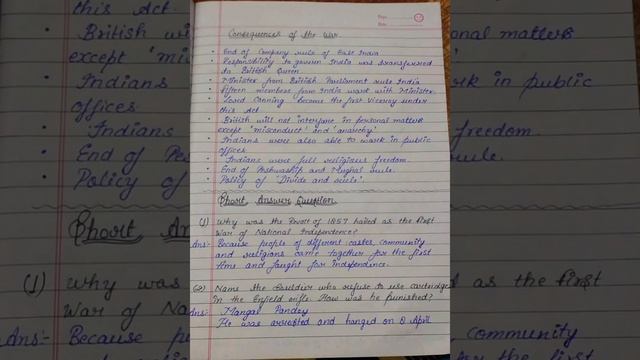 Consequences of the War
• End of Company rule of East India
• Responsibility to govern India was transferred
to British Queen
• Minister from British Parliament rule India
• fifteen members from India work with Minister.
• Lord Canning become the first viceroy under
this Act.
• British will not interpone in personal matters
except 'misconduct' and 'anarchy'
• Indians were also able to work in public
offices
• Indians were full religious freedom.
• End of Peshwaship and Mughal rule.
• Policy of 'Divide and rule'.
Short Answer Question
(1) Why was the Revolt of 1857 hailed as the first
War of National Independence?
Ans:- Because people of different castes, community
and religions came together for the first
time and fought for independence.
(2) Name the Souldier who refuse to use cartridges
in the Enfield rifle. How was he punished?
Ans:- Mangal Pandey
He was arrested and hanged on 8 April